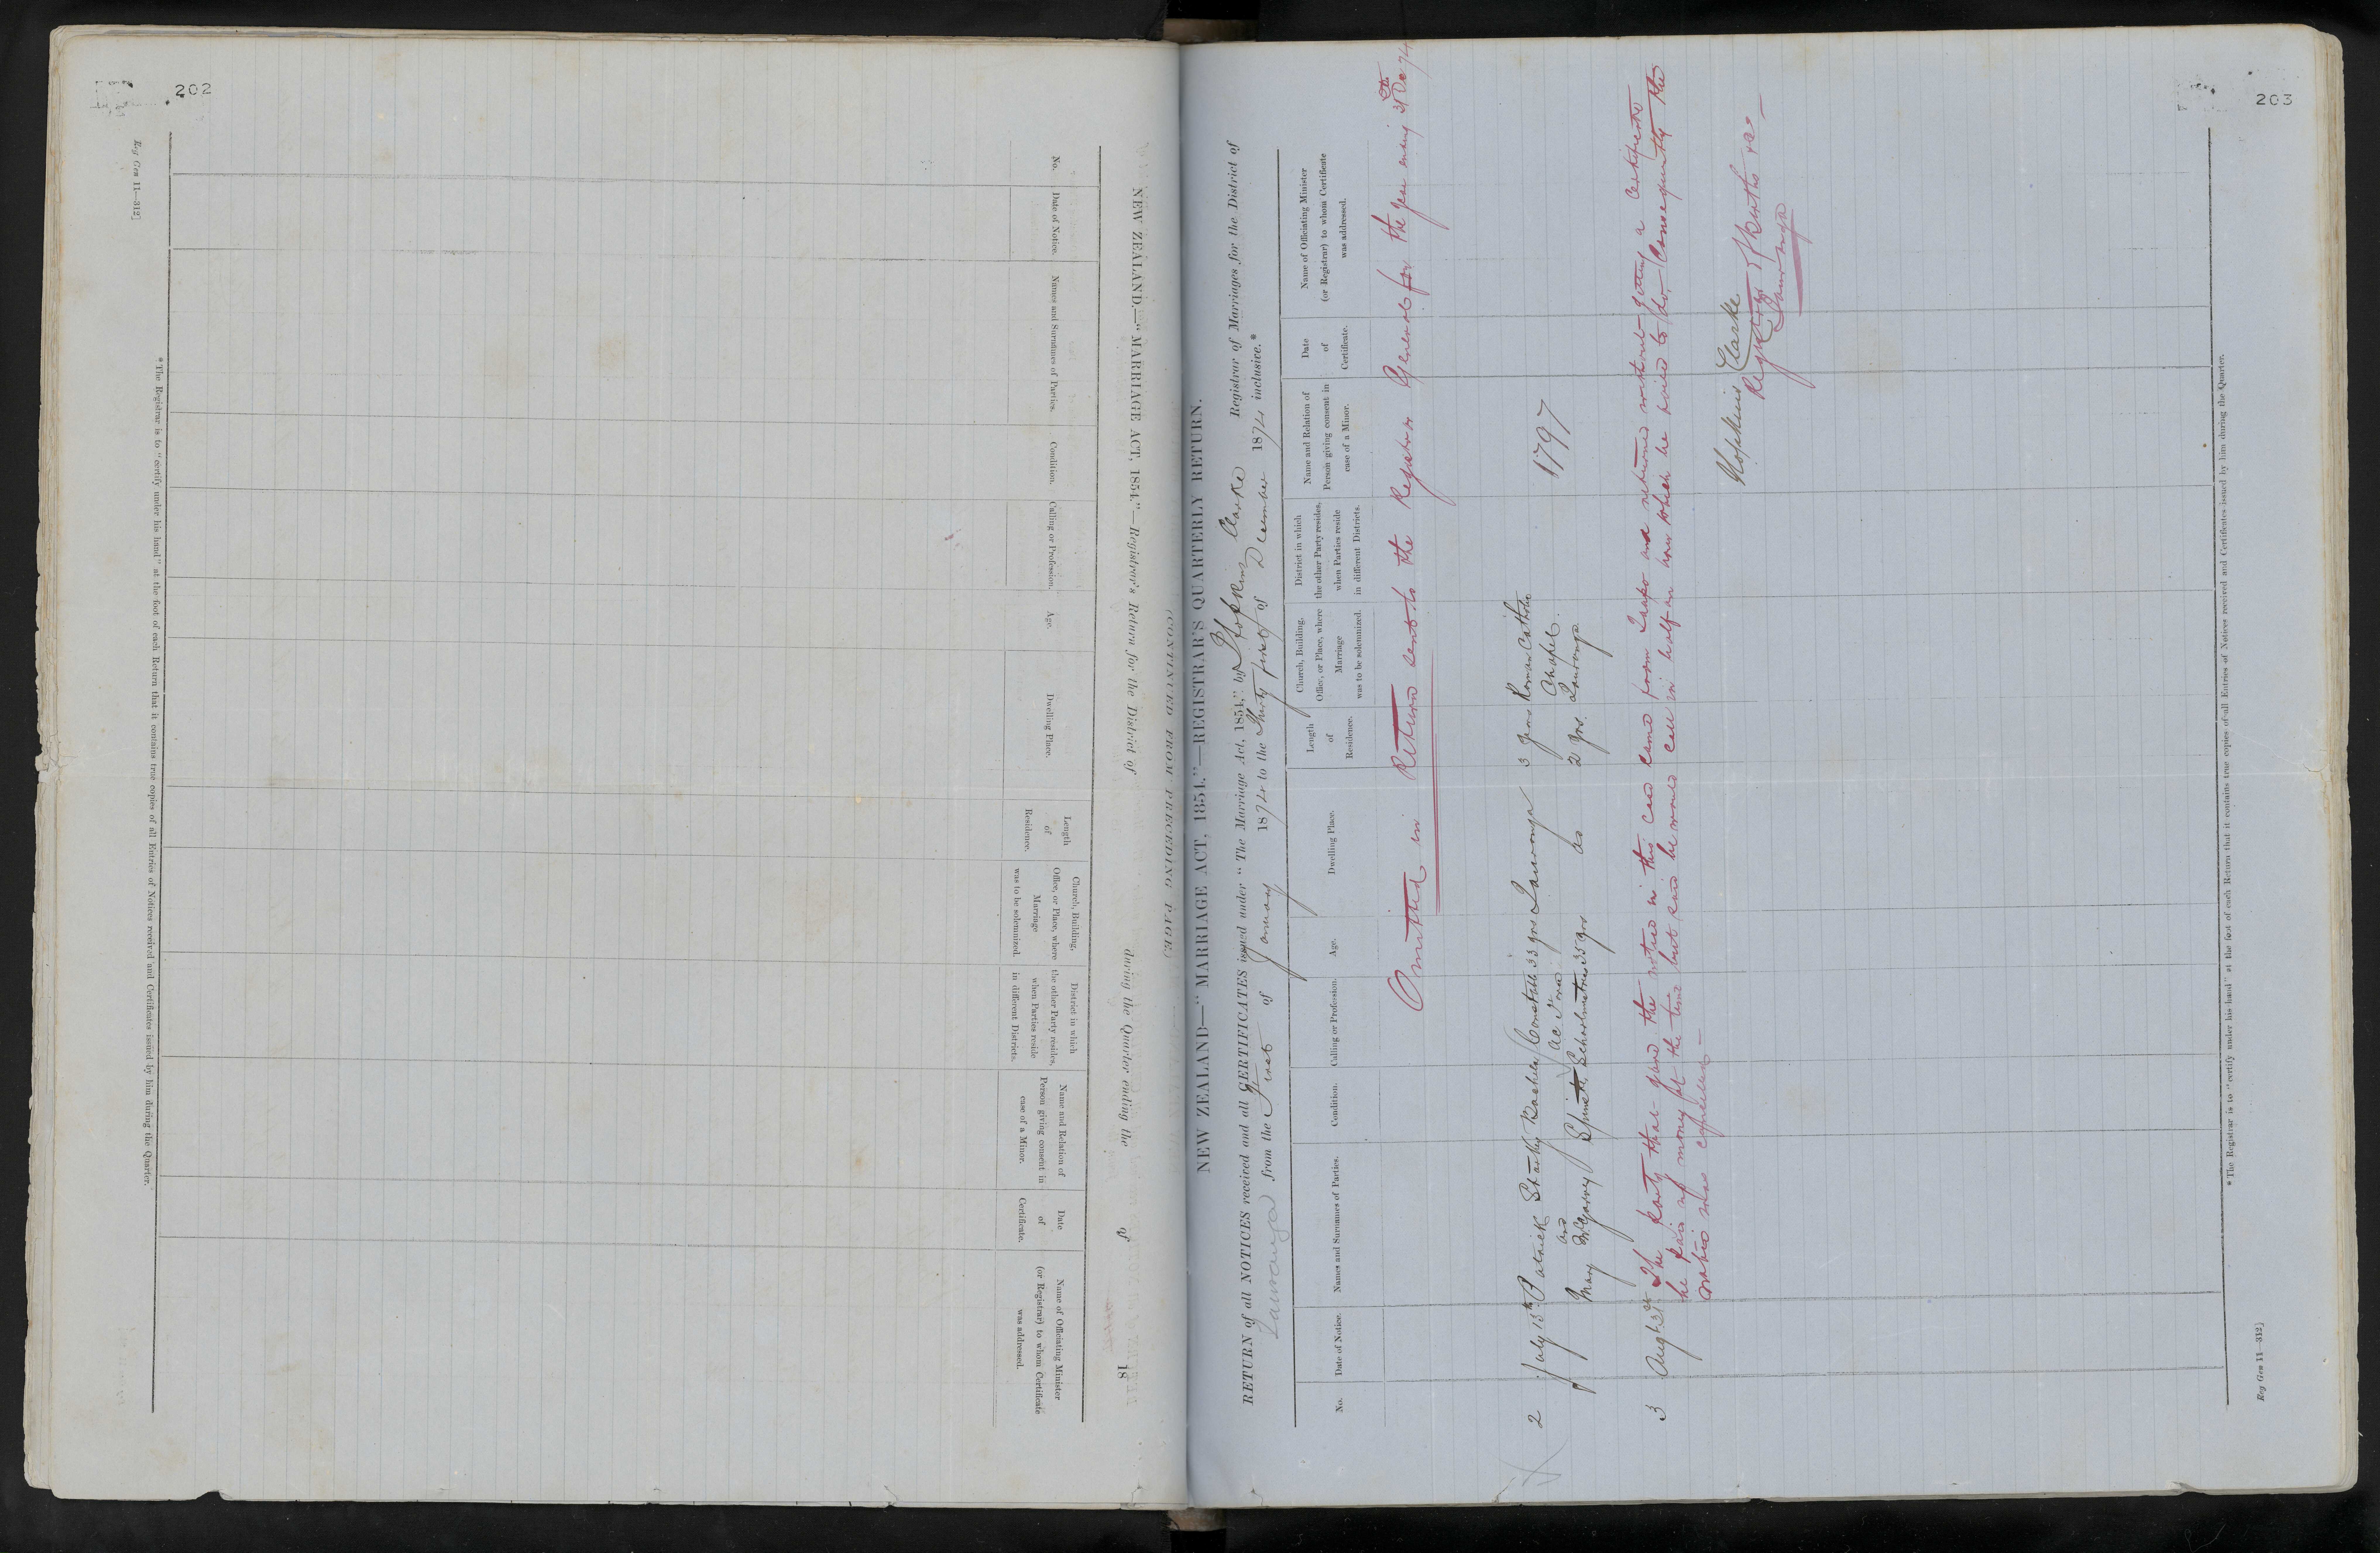 202
Reg Gen 11—312]
NEW ZEALAND.—"MARRIAGE ACT, 1854."—Registrar's Return for the District of during the Quarter ending the of 18
No.
Date of Notice.
Names and Surnames of Parties.
Condition.
Calling or Profession.
Age.
Dwelling Place.
Length of Residence.
Church, Building, Office, or Place, where Marriage was to be solemnized.
District in which the other Party resides, when Parties reside in different Districts.
Name and Relation of Person giving consent in case of a Minor.
Date of Certificate.
Name of Officiating Minister (or Registrar) to whom Certificate was addressed.
* The Registrar is to "certify under his hand" at the foot of each Return that it contains true copies of all Entries of Notices received and Certificates issued by him during the Quarter.
(CONTINUED FROM PRECEDING PAGE)
203
NEW ZEALAND—"MARRIAGE ACT, 1854."—REGISTRAR'S QUARTERLY RETURN.
RETURN of all NOTICES received and all CERTIFICATES issued under "The Marriage Act, 1854," by Hopkins Clarke Registrar of Marriages for the District of
Tauranga from the First of January 1874 to the Thirty first of December 1874 inclusive.*
No.
Date of Notice.
Names and Surnames of Parties.
Condition.
Calling or Profession.
Age.
Dwelling Place.
Length of Residence.
Church, Building, Office, or Place, where Marriage was to be solemnized.
District in which the other Party resides, when Parties reside in different Districts.
Name and Relation of Person giving consent in case of a Minor.
Date of Certificate.
Name of Officiating Minister (or Registrar) to whom Certificate was addressed.
Omitted in Return sent to the Registrar General for the year ending 31 Dec 74
2 July 13th Patrick Bachelor Constable 33 yrs Tauranga 3 years Roman Catholic
and Chapel 1797
Mary Spinster Schoolmistress 35 yrs do 2 yrs. Tauranga
3 Augt 31st The party that gave the notice in this case came from Taupo and returned without getting a Certificate
he paid no money at the time but said he would call in half an hour which he failed to do Consequently the
notice was cancelled —
Hopkins Clarke
Registrar of Births &c
Tauranga
* The Registrar is to "certify under his hand" at the foot of each Return that it contains true copies of all Entries of Notices received and Certificates issued by him during the Quarter.
Reg Gen 11—312]